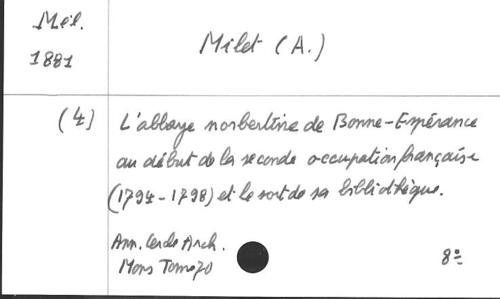 Mél.
1881
Milet (A.)
(4) L'abbaye norbertine de Bonne-Espérance
au début de la seconde occupation française
(1794-1798) et le sort de sa bibliothèque.
Ann. Cercle Arch.
Mons Tome 70
8º